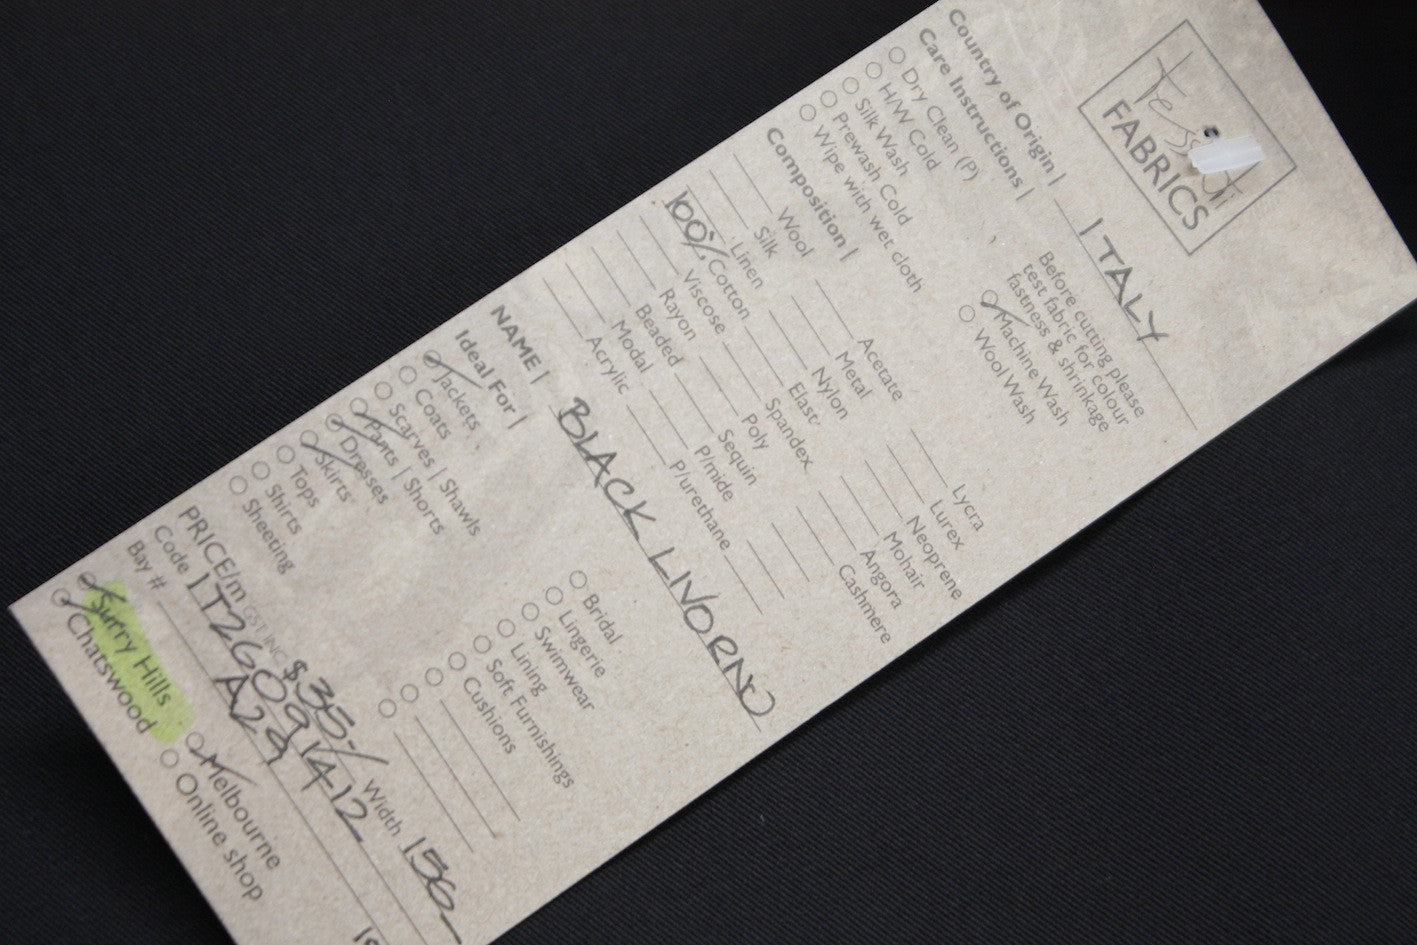 Tessuti
FABRICS
Country of Origin | ITALY
Care Instructions |
Dry Clean (P)
H/W Cold
Silk Wash
Prewash Cold
Wipe with wet cloth
Before cutting please
test fabric for colour
fastness & shrinkage
Machine Wash
Wool Wash
Composition |
Wool
Silk
Linen
100% Cotton
Viscose
Rayon
Beaded
Modal
Acrylic
Acetate
Metal
Nylon
Elast.
Spandex
Poly
Sequin
P/mide
P/urethane
Lycra
Lurex
Neoprene
Mohair
Angora
Cashmere
NAME | BLACK LIVORNO
Ideal For |
Jackets
Coats
Scarves | Shawls
Pants | Shorts
Dresses
Skirts
Tops
Shirts
Sheeting
Bridal
Lingerie
Swimwear
Lining
Soft Furnishings
Cushions
PRICE/m GST INC $35- Width 156
Code IT26091412
Bay # A29
Surry Hills
Chatswood
Melbourne
Online shop